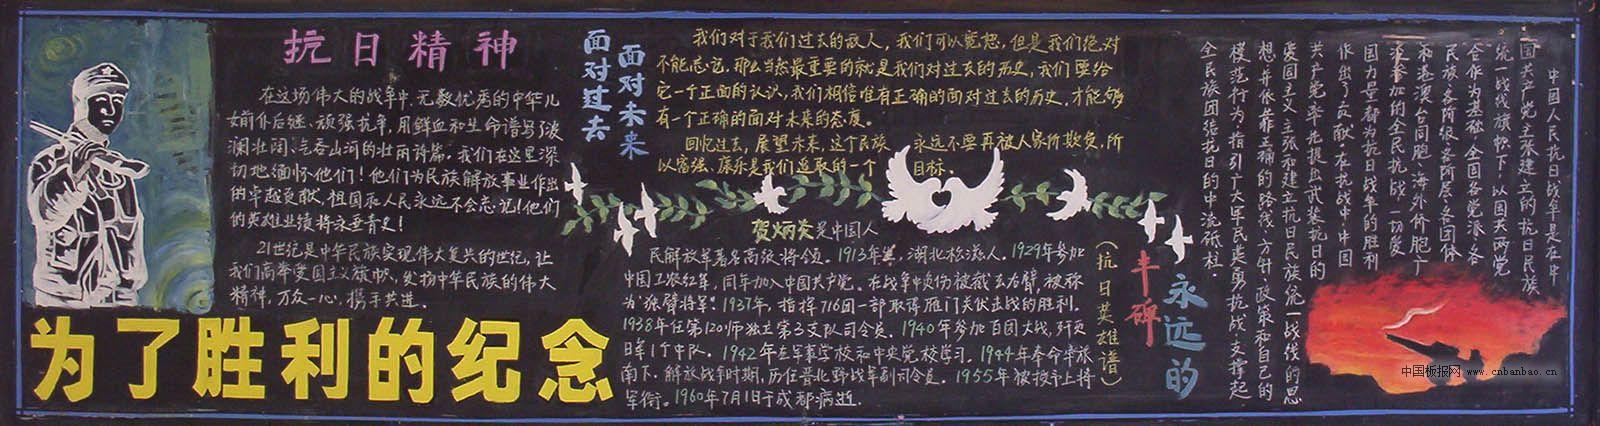 抗日精神
在这场伟大的战争中,无数优秀的中华儿
女前仆后继、顽强抗争,用鲜血和生命谱写了波
澜壮阔、气吞山河的壮丽诗篇。我们在这里深
切地缅怀他们!他们为民族解放事业作出
的卓越贡献,祖国和人民永远不会忘记!他们
的英雄业绩将永垂青史!
21世纪是中华民族实现伟大复兴的世纪,让
我们高举爱国主义旗帜,发扬中华民族的伟大
精神,万众一心,携手共进。
为了胜利的纪念
面对过去
面对未来
我们对于我们过去的敌人,我们可以宽恕,但是我们绝对
不能忘记。那么当然最重要的就是我们对过去的历史,我们要给
它一个正面的认识,我们相信唯有正确的面对过去的历史,才能够
有一个正确的面对未来的态度。
回忆过去,展望未来,这个民族 永远不要再被人家所欺负,所
以富强、康乐是我们追取的一个 目标。
贺炳炎是中国人
民解放军著名高级将领。1913年生,湖北松滋人。1929年参加
中国工农红军,同年加入中国共产党。在战争中负伤被截去右臂,被称
为“独臂将军”。1937年,指挥716团一部取得雁门关伏击战的胜利。
1938年任第120师独立第3支队司令员。1940年参加百团大战,歼灭
日军1个中队。1942年在军事学校和中央党校学习。1944年奉命率旅
南下。解放战争时期,历任晋北野战军副司令员。1955年被授予上将
军衔。1960年7月1日于成都病逝。
(抗日英雄谱)
丰碑
永远的
中国人民抗日战争是在中
国共产党主张建立的抗日民族
统一战线旗帜下,以国共两党
合作为基础,全国各党派各
民族、各阶级、各阶层、各团体
和港澳台同胞、海外侨胞广
泛参加的全民抗战。一切爱
国力量都为抗日战争的胜利
作出了贡献。在抗战中,中国
共产党率先提出武装抗日的
爱国主义主张和建立抗日民族统一战线的思
想,并依靠正确的路线、方针、政策和自己的
模范行为,指引广大军民英勇抗战,支撑起
全民族团结抗日的中流砥柱。
中国板报网 www.cnbanbao.cn